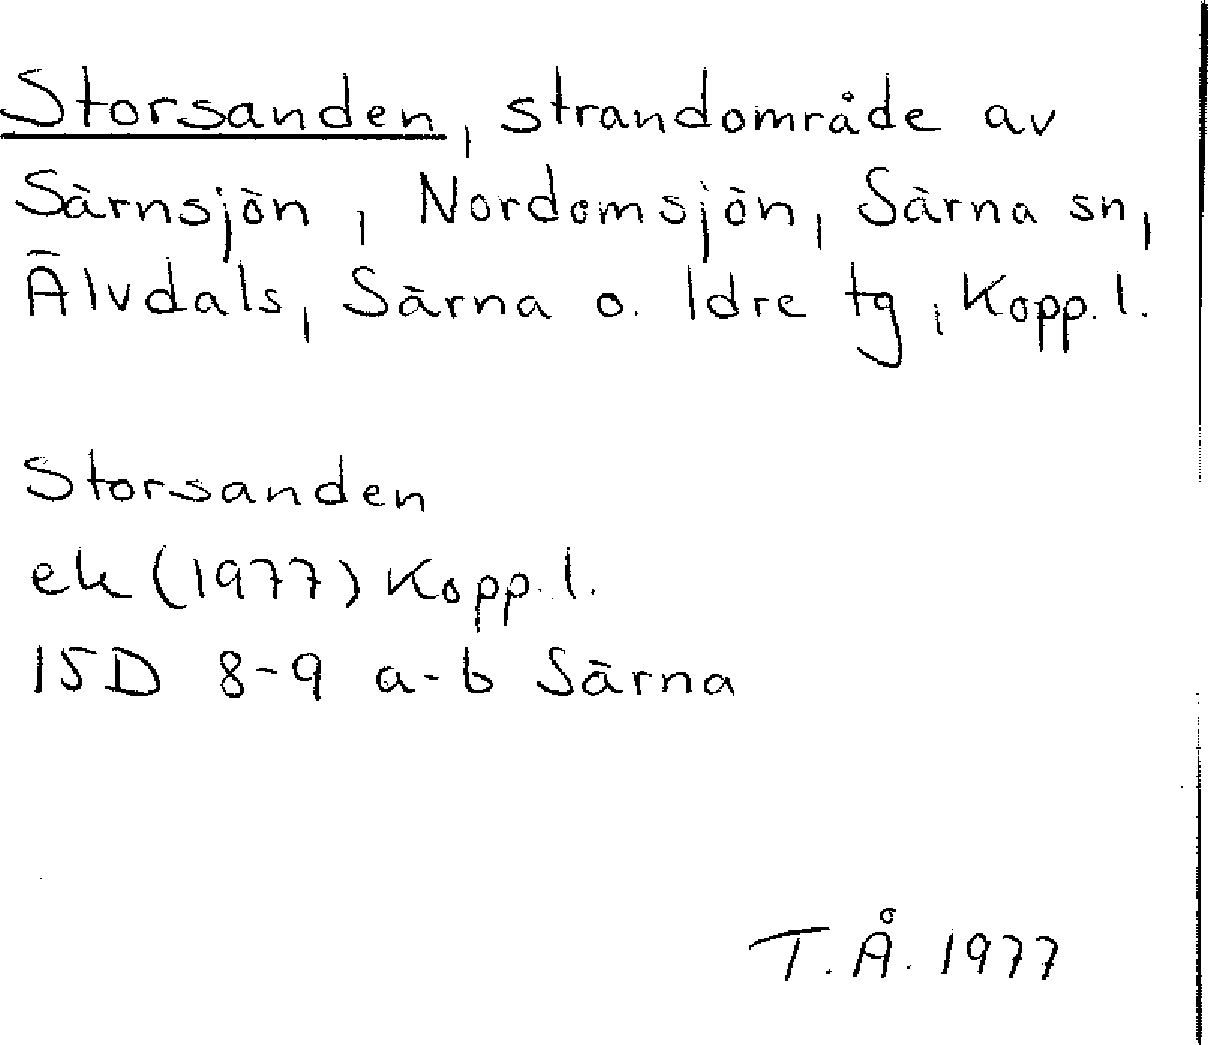 Storsanden, strandområde av
Särnsjön, Nordomsjön, Särna sn,
Älvdals, Särna o. Idre tg, Kopp. l.
Storsanden
ek (1977) Kopp. l.
15D 8-9 a-b Särna
T.Å. 1977